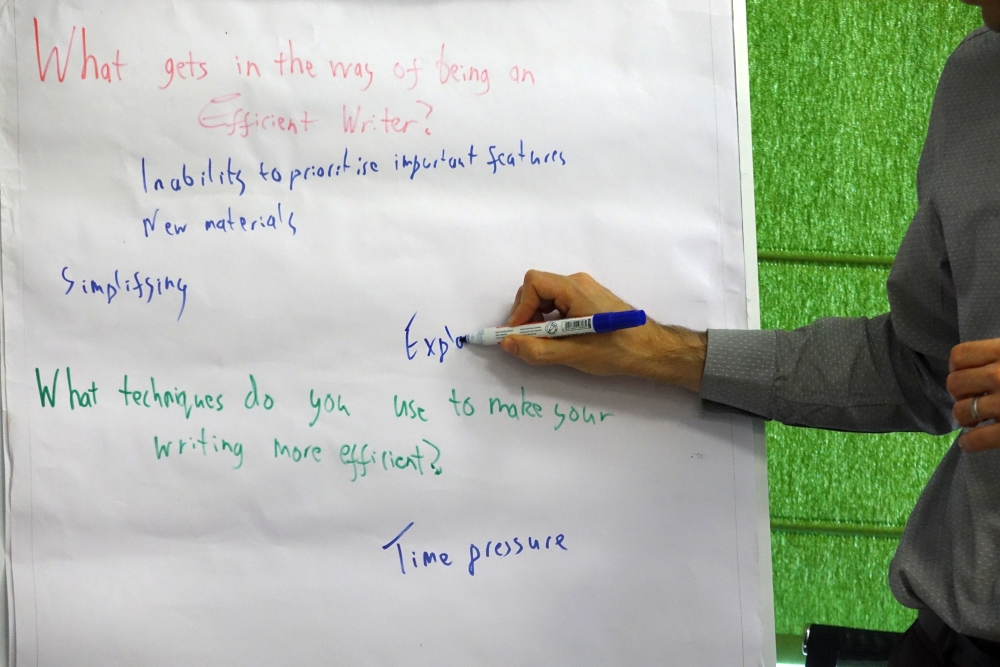 What gets in the way of being an
Efficient Writer?
Inability to prioritise important features
New materials
Simplifying
Explo
What techniques do you use to make your
writing more efficient?
Time pressure